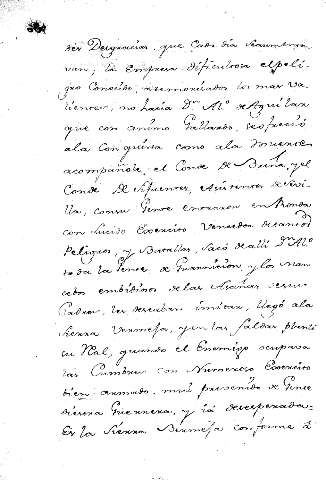 der Desgracias, que Cada dia Seaumenta
van; la Empresa dificultosa el peli
gro Conocido, atemorizados los mas va
lientes, no hacia Dn. Alo. de Aguilar
que con animo Gallardo, se ofreció
ala Conquista como ala muerte
acompañole el Conde De Ureña, y el
Conde De Sifuentes, Asistente de Sevi
lla, consu Gente entraron en Ronda
con lucido Exercito Vencedor detantos
Peligros, y Batallas, Sacó de alli Dn. Alo.
toda la Gente de Guarnicion, y los man
cebos embidiosos de las Asañas desus
Padres, les deseaban imitar, llegó ala
Sierra Vermeja, y en las faldas planto
su Real, quando el Enemigo ocupava
las Cumbres con Numeroso Exercito
bien armado, mui prevenido de Gente
diestra Guerrera, y ia desesperada=
Es la Sierra Bermeja conforme á